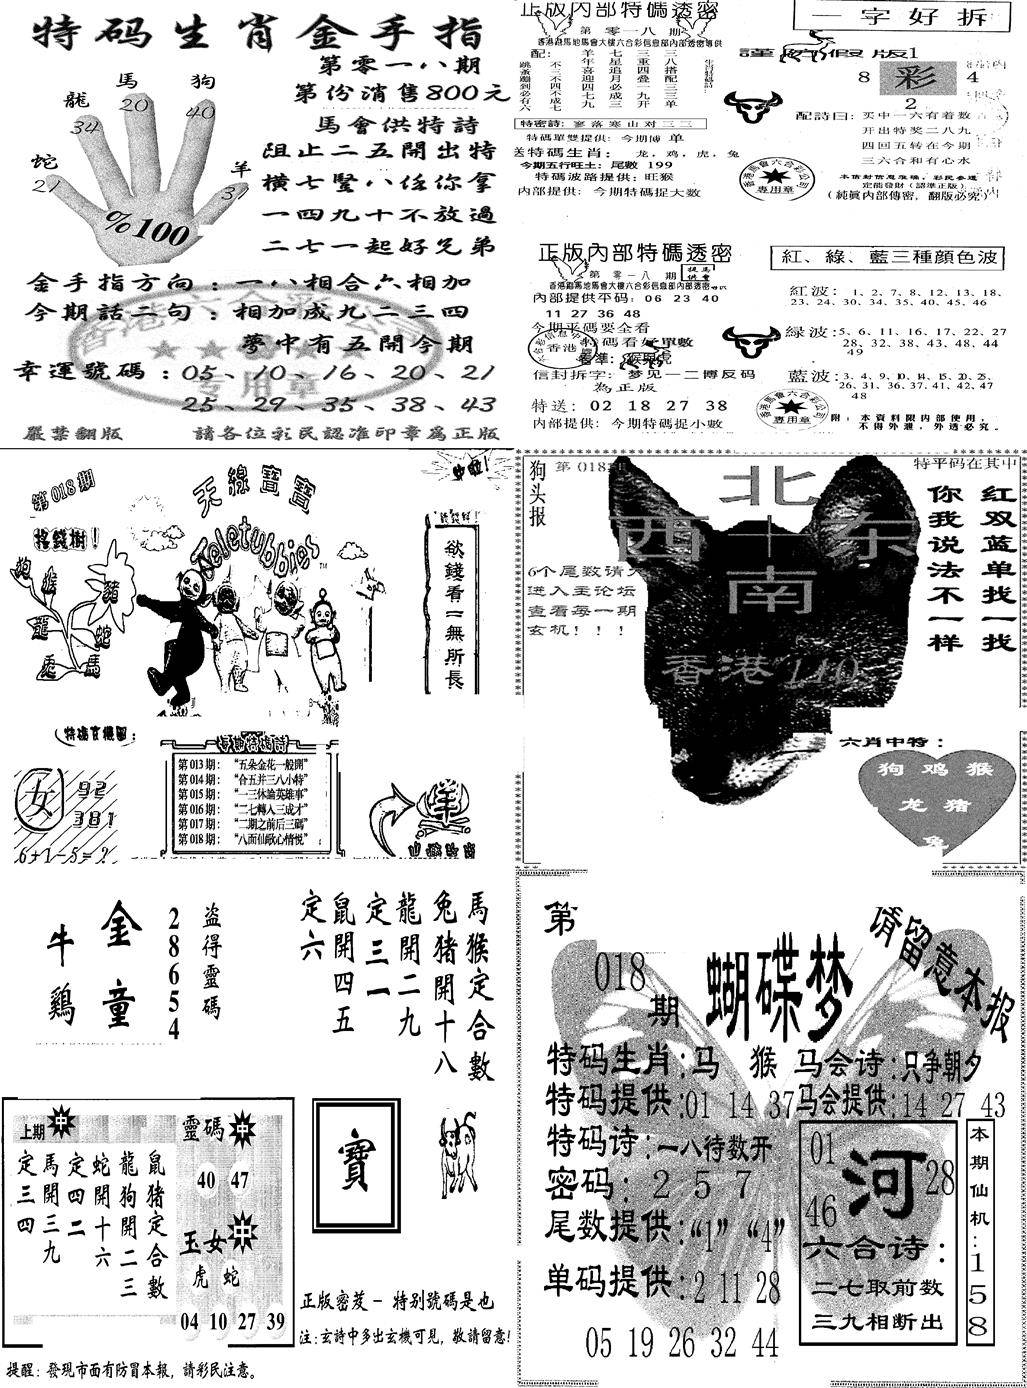 特码生肖金手指
第零一八期
第份消售800元
馬會供特詩
阻止二五開出特
橫七竪八任你拿
一四九十不放過
二七一起好兄弟
蛇
21
龍
34
馬
20
狗
40
羊
31
%100
金手指方向：一八相合六相加
今期話二句：相加成九二三四
夢中有五開今期
幸運號碼：05、10、16、20、21
25、29、35、38、43
香港六合彩公司
专用章
嚴禁翻版
請各位彩民認准印章為正版
正版內部特碼透密
第零一八期
香港跑馬地馬會大樓六合彩信息部內部透密專供
特密詩：寥落寒山对三三
特碼單雙提供：今期博 单
送特碼生肖：龙，鸡，虎，兔
今期五行旺土：尾數 199
特碼波路提供：旺猴
内部提供：今期特碼捉大数
一字好拆
謹防假版1
8
彩
4
2
配詩曰：买中一六有着数
开出特奖二八九
四回五转在今期
三六合和有心水
(純眞内部傳密，翻版必究)
正版內部特碼透密
第零一八期
香港跑馬地馬會大樓六合彩信息部內部透密專供
內部提供平码：06 23 40
11 27 36 48
今期平碼要全看
特碼看好單數
信封拆字：梦见一二博反码
為正版
特送：02 18 27 38
内部提供：今期特碼捉小數
紅、綠、藍三種顔色波
紅波：1、2、7、8、12、13、18、
23、24、30、34、35、40、45、46
緑波：5、6、11、16、17、22、27
28、32、38、43、48、44
49
藍波：3、4、9、10、14、15、20、25、
26、31、36、37、41、42、47
48
附：本資料限内部使用，
不得外泄，外透必究。
第018期
天線寶寶
Teletubbies
搖錢樹！
猴
豬
龍
蛇
兎
馬
欲錢看二無所長
特碼玄機圖：
女
92
381
6+1-5=?
每期特碼詩
第013期：“五朵金花一般開”
第014期：“合五并三八小特”
第015期：“一三休論英雄事”
第016期：“二七轉入三成才”
第017期：“二期之前后三碼”
第018期：“八面仙敵心情悦”
羊
狗头报
第 018 期
特平码在其中
北
西 十 东
南
香港 110
6个尾数请
进入主论坛
查看每一期
玄机！！！
红双蓝单找一找
你我说法不一样
六肖中特：
狗 鸡 猴
龙 猪
兔
金童
牛鷄
盗得靈碼
28654
馬猴定合數
兔猪開十八
龍開二九
定三一
鼠開四五
定六
上期
中
鼠猪定合數
龍狗開二三
蛇開十六
定四二
馬開三九
定三四
靈碼
中
40 47
玉女
中
虎 蛇
04 10 27 39
寶
正版密笈－特别號碼是也
注：玄詩中多出玄機可見，敬請留意！
提醒：發現市面有防冒本報，請彩民注意。
第
018
期
蝴蝶梦
请留意本报
特码生肖：马 猴
马会诗：只争朝夕
特码提供：01 14 37
马会提供：14 27 43
特码诗：一八待数开
密码：2 5 7
尾数提供：“1” “4”
单码提供：2 11 28
05 19 26 32 44
01
河
28
46
六合诗：
二七取前数
三九相断出
本期仙机：158